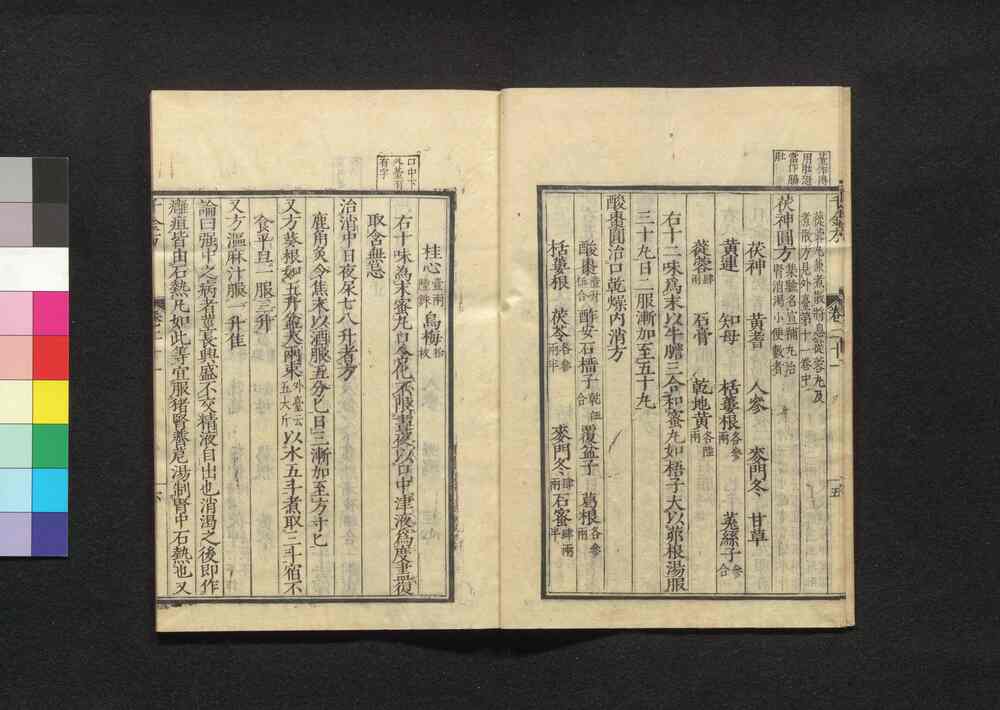 蓯蓉丸兼煮散將息蓯蓉丸及
煮散方見外臺第十一卷中
茯神圓方集驗名宣補丸治
腎消渴小便數者
茯神　黃耆　人參　麥門冬　甘草
黃連　知母　栝蔞根各參兩　菟絲子參合
蓯蓉肆兩　石膏　乾地黃各陸兩
右十二味爲末以牛膽三合和蜜丸如梧子大以茆根湯服
三十丸日二服漸加至五十丸
酸棗圓治口乾燥內消方
酸棗壹升伍合　酢安石榴子乾伍合　覆盆子　葛根各參兩
栝蔞根　茯苓各參兩半　麥門冬肆兩　石蜜肆兩半
桂心壹兩陸銖　烏梅枚
右十味為末蜜丸口含化不限晝夜以口中津液為度盡復
取含無忌
治消中日夜尿七八升者方
鹿角炙令焦末以酒服五分匕日三漸加至方寸匕
又方葵根如五升盆大兩束外臺云五大斤以水五斗煮取三斗宿不
食平旦一服三升
又方漚麻汁服一升佳
論曰强中之病者莖長興盛不交精液自出也消渴之後即作
癰疽皆由石熱凡如此等宜服猪腎薺苨湯制腎中石熱也又
千金方　卷二十一　五
口中下
外臺有
有字